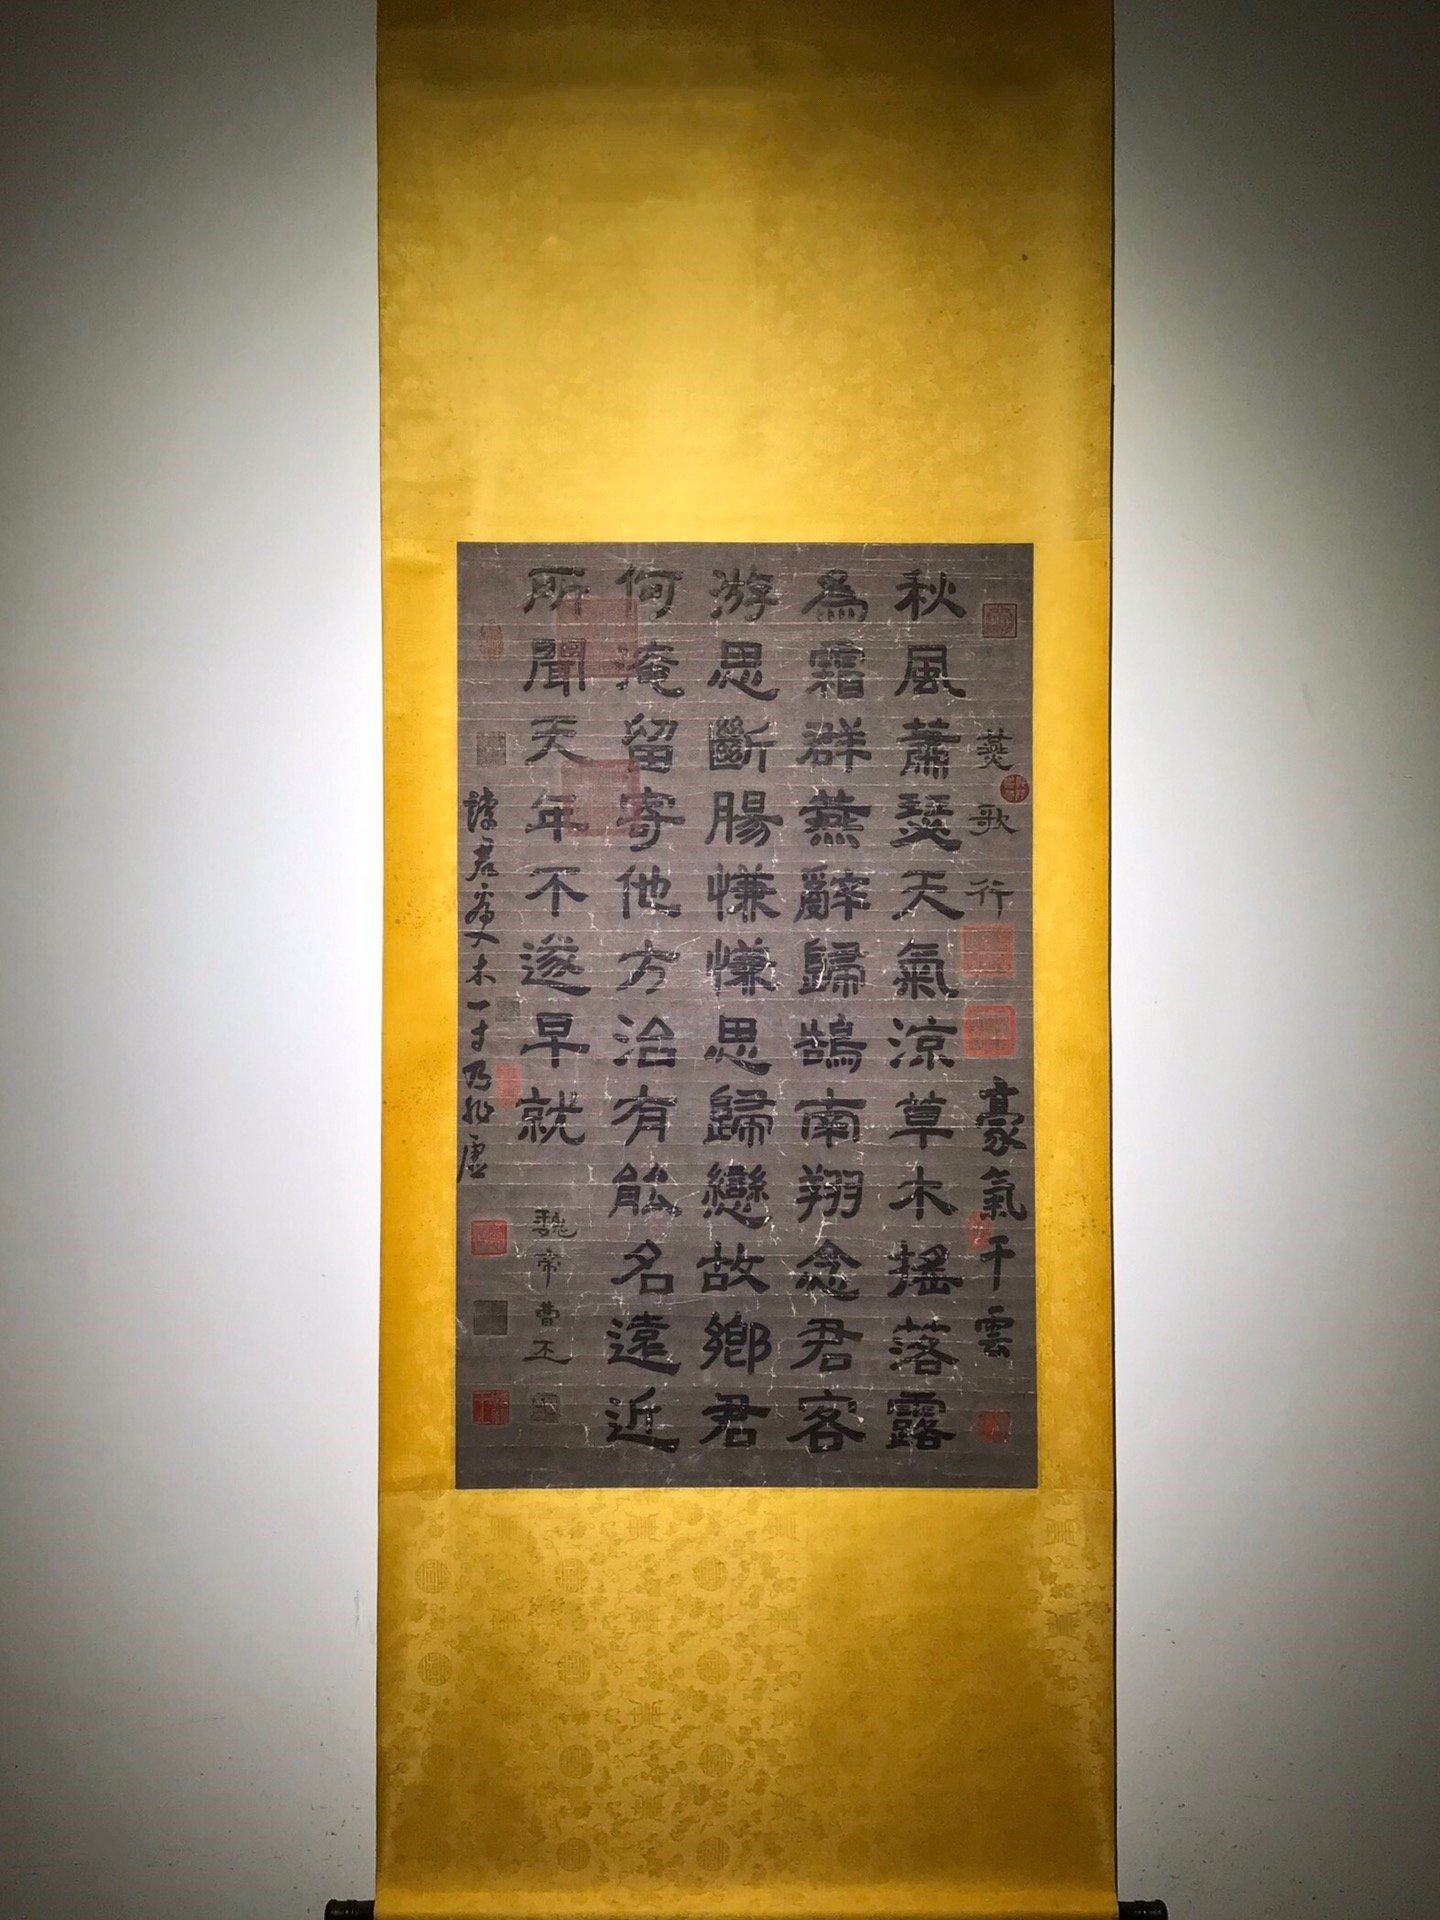 燕歌行
豪氣干雲
秋風蕭瑟天氣涼草木搖落露
為霜群燕辭歸鵠南翔念君客
游思斷腸慊慊思歸戀故鄉君
何淹留寄他方治有能名遠近
所聞天年不遂早就
魏帝曹丕